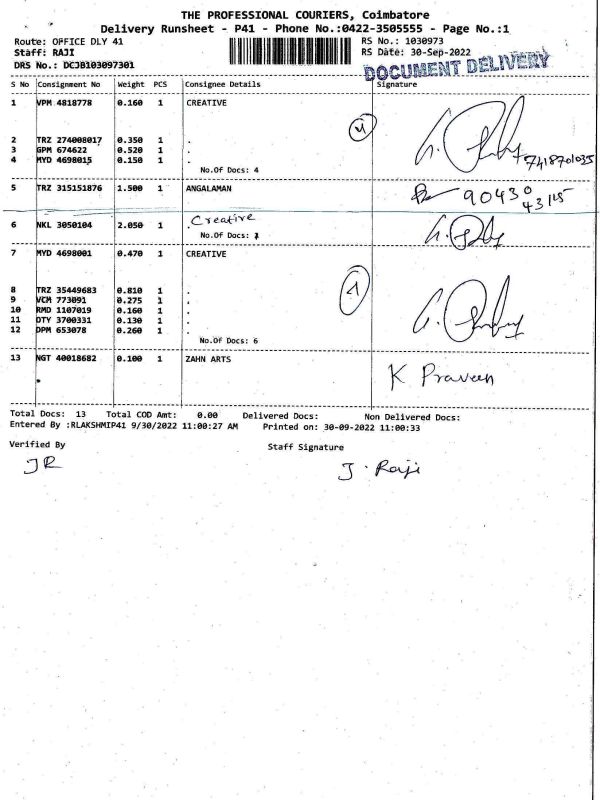 THE PROFESSIONAL COURIERS, Coimbatore
Delivery Runsheet - P41 - Phone No.:0422-3505555 - Page No.:1
Route: OFFICE DLY 41 RS No.: 1030973
Staff: RAJI RS Date: 30-Sep-2022
DRS No.: DCJB103097301 DOCUMENT DELIVERY
S No Consignment No Weight PCS Consignee Details Signature
1 VPM 4818778 0.160 1 CREATIVE
2 TRZ 274008017 0.350 1 .
3 GPM 674622 0.520 1 .
4 MYD 4698015 0.150 1 . 7418701035
No.Of Docs: 4
5 TRZ 315151876 1.500 1 ANGALAMAN 90430
43145
6 NKL 3050104 2.050 1 . Creative
No.Of Docs:
7 MYD 4698001 0.470 1 CREATIVE
8 TRZ 35449683 0.810 1 .
9 VCM 773091 0.275 1 .
10 RMD 1107019 0.160 1 .
11 OTY 3700331 0.130 1 .
12 DPM 653078 0.260 1 .
No.Of Docs: 6
13 NGT 40018682 0.100 1 ZAHN ARTS
K Praveen
Total Docs: 13 Total COD Amt: 0.00 Delivered Docs: Non Delivered Docs:
Entered By :RLAKSHMIP41 9/30/2022 11:00:27 AM Printed on: 30-09-2022 11:00:33
Verified By Staff Signature
JR J. Raji